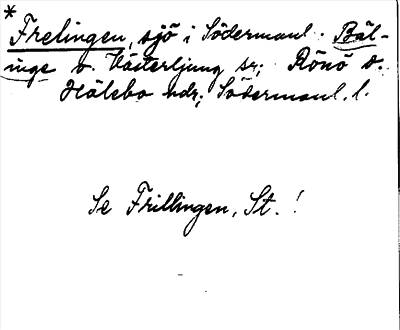 * Frelingen, sjö i Södermanl. Bäl-
inge o. Västerljung sr; Rönö o.
Hölebo hdr; Södermanl. l.
Se Frillingen, St.!